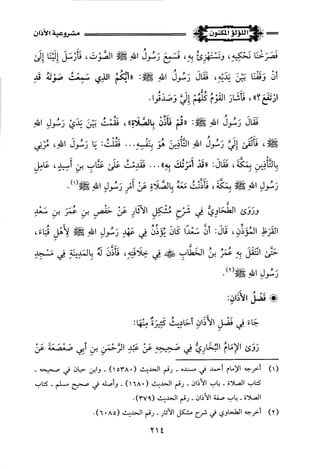 اللؤلؤ المكنون
مشروعية الأذان
فَصَرَخْنَا نَحْكِيهِ، وَنَسْتَهْزِئُ بِهِ، فَسَمِعَ رَسُولُ اللهِ ﷺ الصَّوْتَ، فَأَرْسَلَ إِلَيْنَا إِلَى
أَنْ وَقَفْنَا بَيْنَ يَدَيْهِ، فَقَالَ رَسُولُ اللهِ ﷺ: «أَيُّكُمُ الذِي سَمِعْتُ صَوْتَهُ قَدِ
ارْتَفَعَ؟»، فَأَشَارَ القَوْمُ كُلُّهُمْ إِلَيَّ وَصَدَقُوا.
فَقَالَ رَسُولُ اللهِ ﷺ: «قُمْ فَأَذِّنْ بِالصَّلَاةِ»، فَقُمْتُ بَيْنَ يَدَيْ رَسُولِ اللهِ
ﷺ، فَأَلْقَى إِلَيَّ رَسُولُ اللهِ ﷺ التَّأْذِينَ هُوَ بِنَفْسِهِ... فَقُلْتُ: يَا رَسُولَ اللهِ، مُرْنِي
بِالتَّأْذِينِ بِمَكَّةَ، فَقَالَ: «قَدْ أَمَرْتُكَ بِهِ»... فَقَدِمْتُ عَلَى عَتَّابِ بنِ أَسِيدٍ، عَامِلِ
رَسُولِ اللهِ ﷺ بِمَكَّةَ، فَأَذَّنْتُ مَعَهُ بِالصَّلَاةِ عَنْ أَمْرِ رَسُولِ اللهِ ﷺ(١).
وَرَوَى الطَّحَاوِيُّ فِي شَرْحِ مُشْكِلِ الآثَارِ عَنْ حَفْصِ بنِ عُمَرَ بنِ سَعْدِ
القَرَظِ المُؤَذِّنِ، قَالَ: أَنَّ سَعْدًا كَانَ يُؤَذِّنُ فِي عَهْدِ رَسُولِ اللهِ ﷺ لِأَهْلِ قُبَاءَ،
حَتَّى انْتَقَلَ بِهِ عُمَرُ بنُ الخَطَّابِ ﵁ فِي خِلَافَتِهِ، فَأَذَّنَ لَهُ بِالمَدِينَةِ فِي مَسْجِدِ
رَسُولِ اللهِ ﷺ(٢).
❋ فَضْلُ الأَذَانِ:
جَاءَ فِي فَضْلِ الأَذَانِ أَحَادِيثُ كَثِيرَةٌ مِنْهَا:
رَوَى الإِمَامُ البُخَارِيُّ فِي صَحِيحِهِ عَنْ عَبْدِ الرَّحْمَنِ بنِ أَبِي صَعْصَعَةَ عَنْ
(١) أخرجه الإمام أحمد في مسنده ـ رقم الحديث (١٥٣٨٠) ـ وابن حبان في صحيحه ـ
كتاب الصلاة ـ باب الأذان ـ رقم الحديث (١٦٨٠) ـ وأصله في صحيح مسلم ـ كتاب
الصلاة ـ باب صفة الأذان ـ رقم الحديث (٣٧٩).
(٢) أخرجه الطحاوي في شرح مشكل الآثار ـ رقم الحديث (٦٠٨٥).
٢١٤